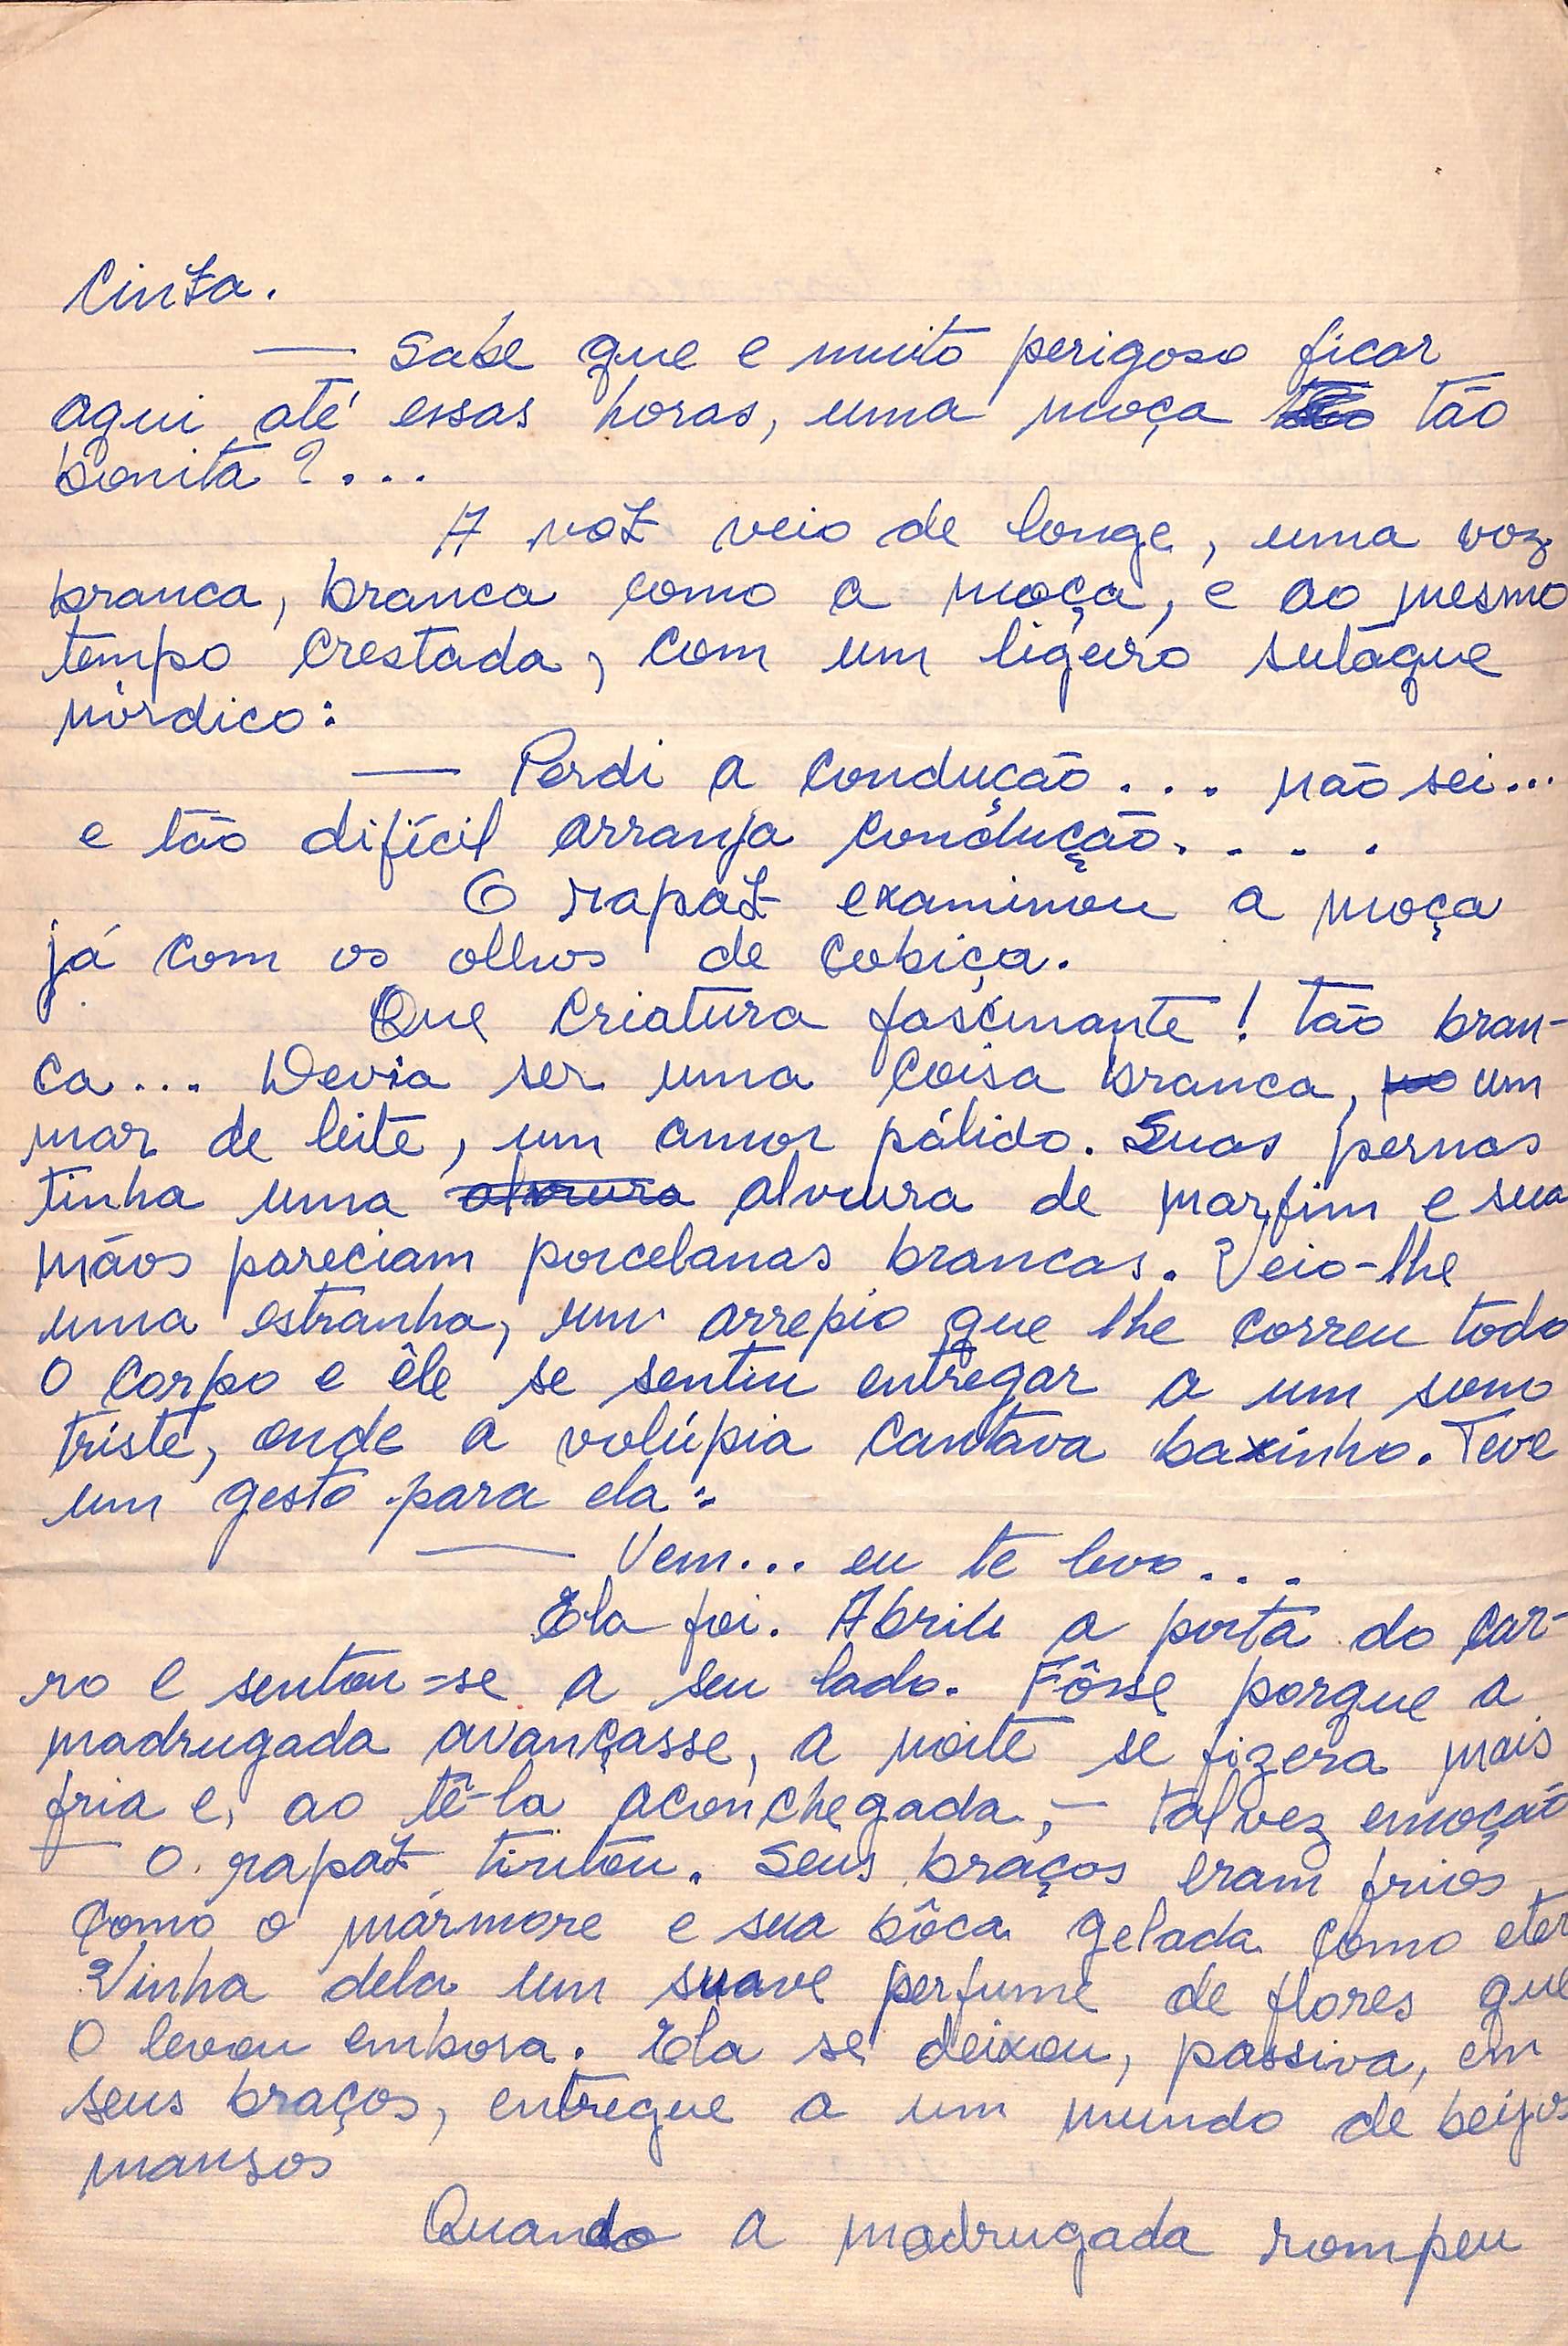 cinza.
— Sabe que e muito perigoso ficar
aqui até essas horas, uma moça tão
bonita?...
A voz veio de longe, uma voz
branca, branca como a moça, e ao mesmo
tempo crestada, com um ligeiro sutaque
nórdico:
— Perdi a condução... não sei...
e tão difícil arranja condução....
O rapaz examinou a moça
já com os olhos de cobiça.
Que criatura fascinante! tão bran-
ca... Devia ser uma coisa branca, um
mar de leite, um amor pálido. Suas pernas
tinha uma alvura alvura de marfim e sua
mãos pareciam porcelanas brancas. Veio-lhe
uma estranha, um arrepio que lhe correu todo
o corpo e êle se sentiu entregar a um sono
triste, onde a volúpia cantava baxinho. Teve
um gesto para ela:
— Vem... eu te levo...
Ela foi. Abriu a porta do car-
ro e sentou-se a seu lado. Fôsse porque a
madrugada avançasse, a noite se fizera mais
fria e, ao tê-la aconchegada, — talvez emoção
— o rapaz tiritou. Seus braços eram frios
como o mármore e sua bôca gelada como eter
Vinha dela um suave perfume de flores que
o levou embora. Ela se deixou, passiva, em
seus braços, entregue a um mundo de beijos
mansos
Quando a madrugada rompeu